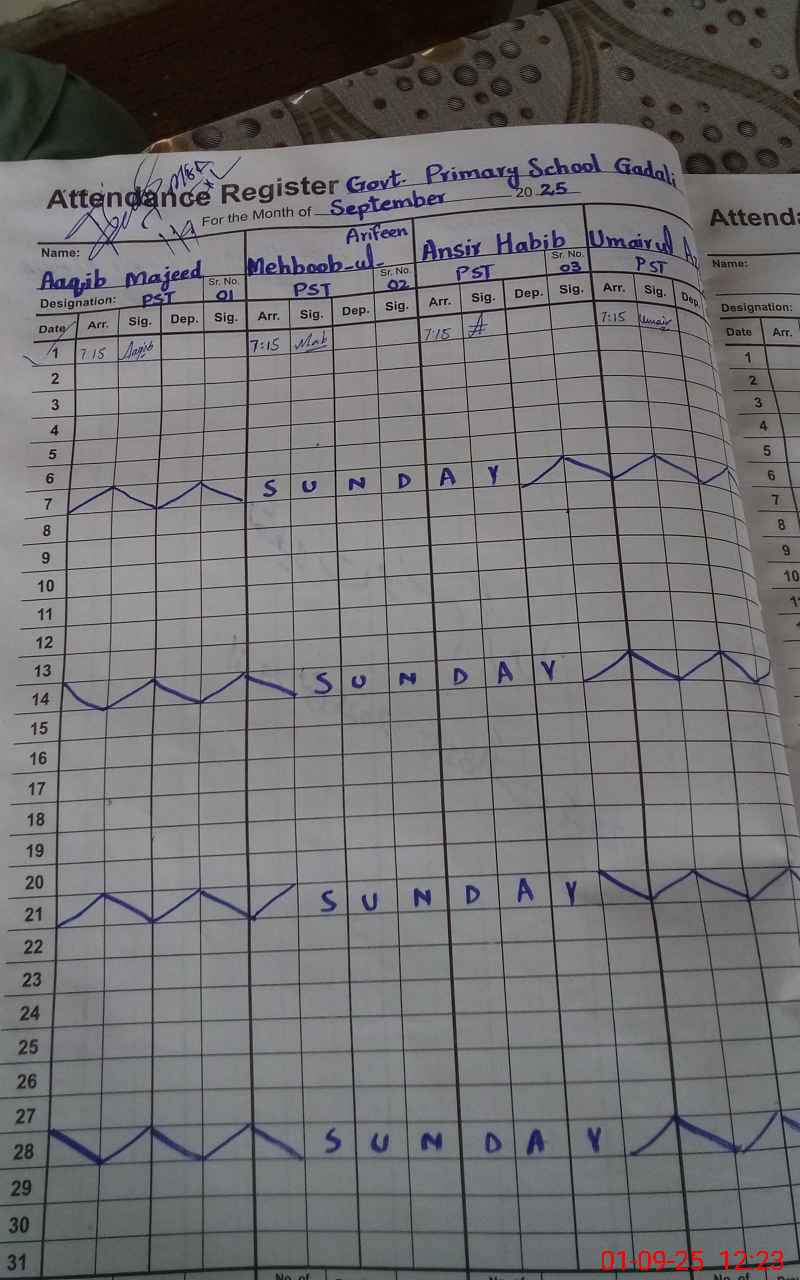 Attendance Register Govt. Primary School Gadali
For the Month of September 2025
Name: Aaqib Majeed Mehboob-ul- Arifeen Ansir Habib Umairul
Sr. No. 01 Sr. No. 02 Sr. No. 03
Designation: PST PST PST PST
Date Arr. Sig. Dep. Sig. Arr. Sig. Dep. Sig. Arr. Sig. Dep. Sig. Arr. Sig. Dep.
1 7:15 Aaqib 7:15 Meh 7:15 7:15 Umair
2
3
4
5
6
7 SUNDAY
8
9
10
11
12
13
14 SUNDAY
15
16
17
18
19
20
21 SUNDAY
22
23
24
25
26
27
28 SUNDAY
29
30
31
No. of No. of
Attenda
Name:
Designation:
Date Arr.
1
2
3
4
5
6
7
8
9
10
01-09-25 12:23